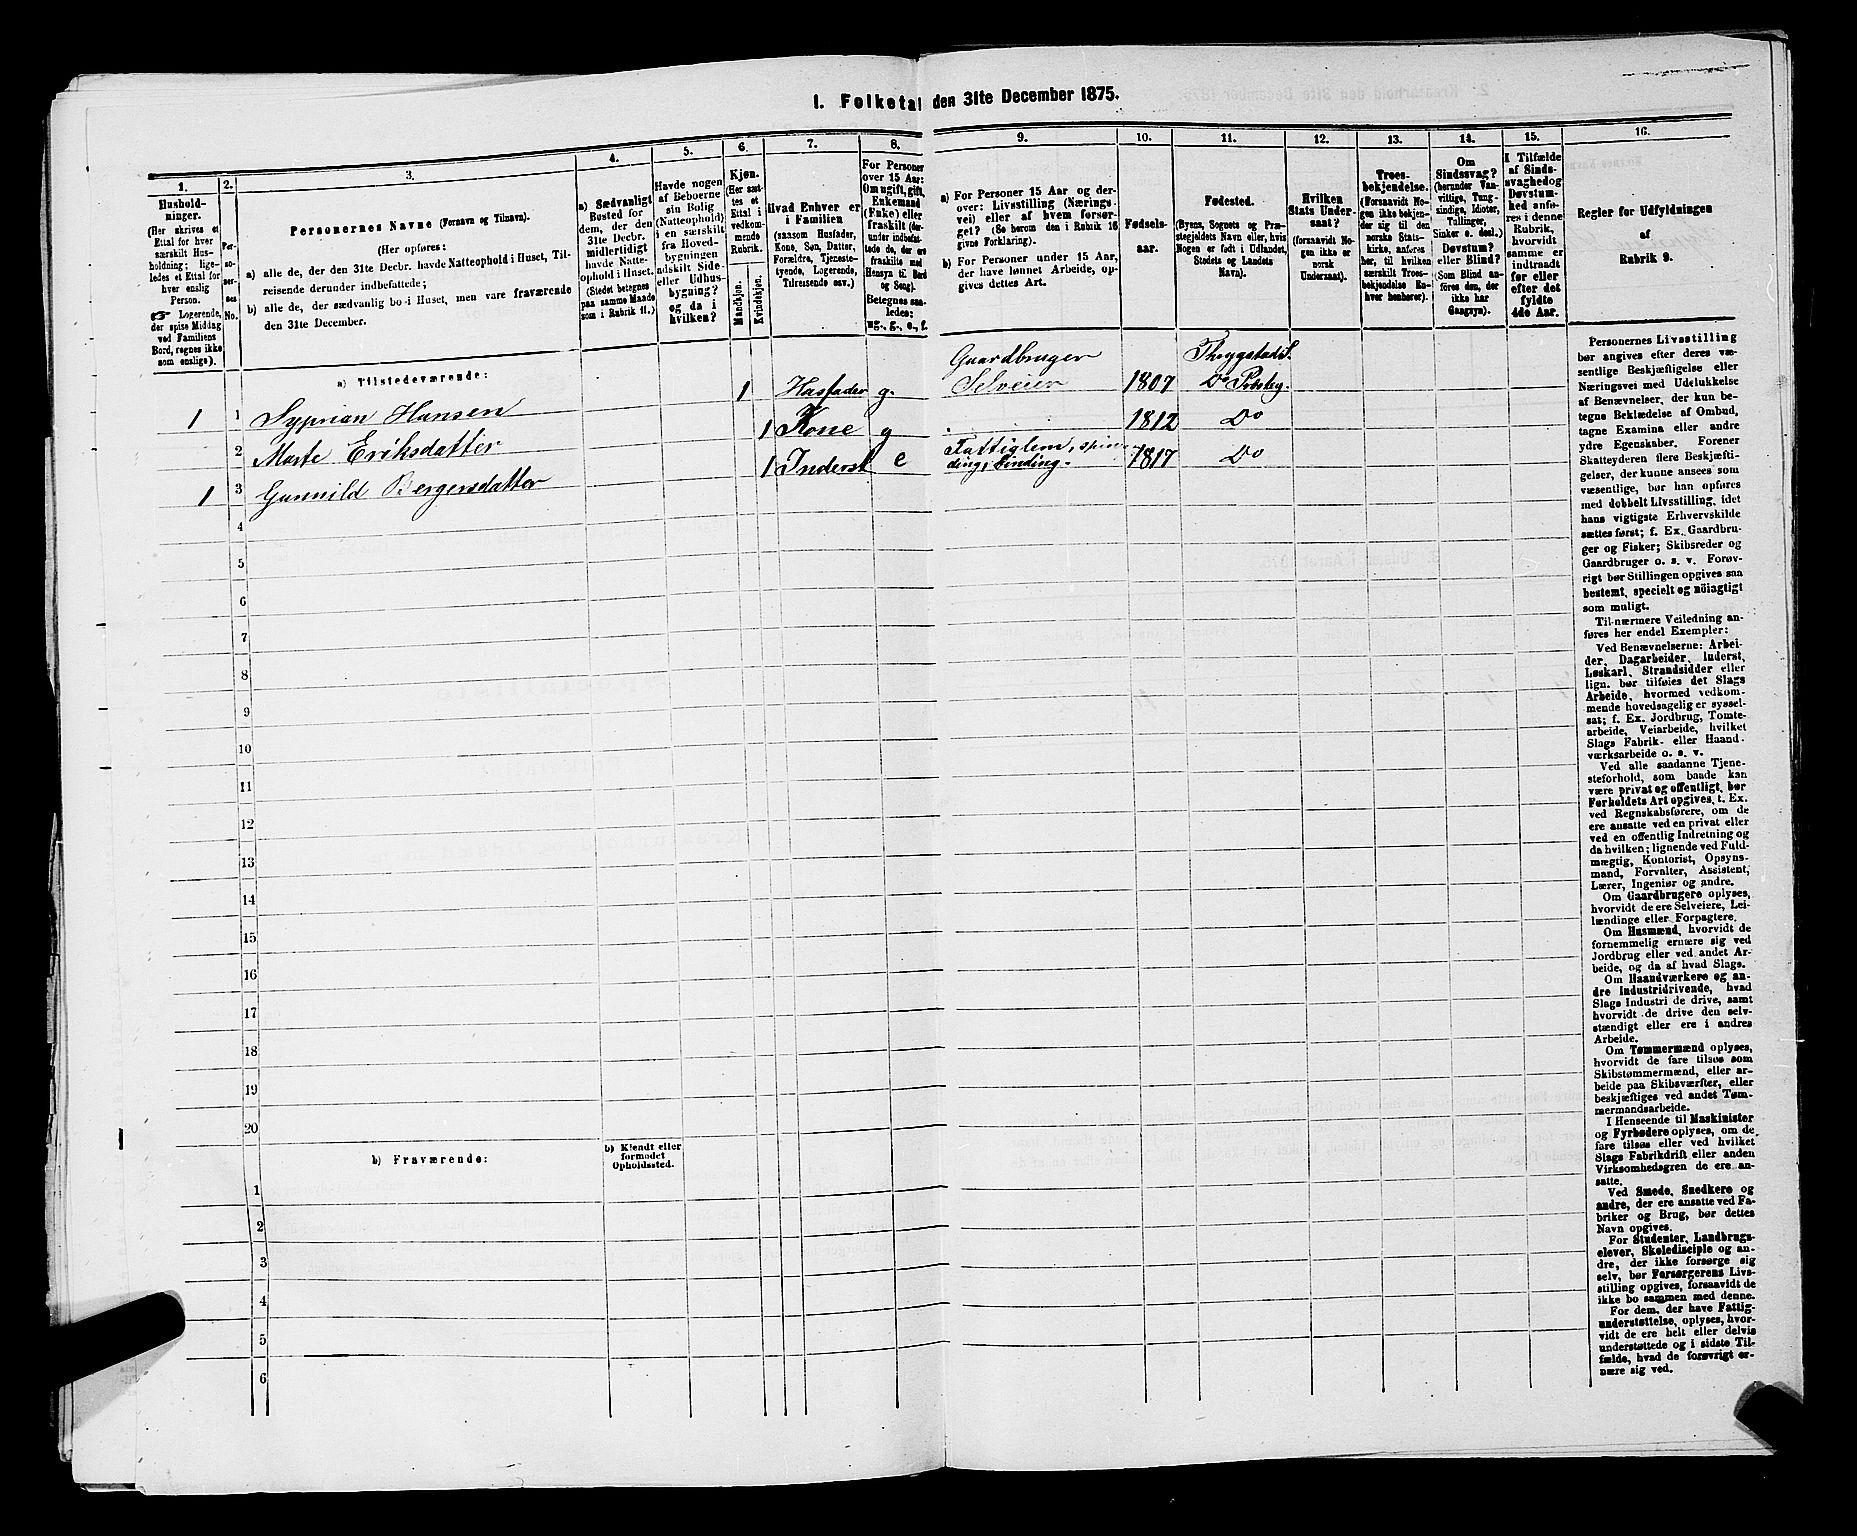 I. Folketal den 31te December 1875.
1.
2.
3.
4.
5.
6.
7.
8.
9.
10.
11.
12.
13.
14.
15.
16.
Hushold-
ninger.
(Her skrives et
Ettal for hver
særskilt Hus-
holdning; lige-
ledes et Ettal for
hver enslig
Person.
☞ Logerende,
der spise Middag
ved Familiens
Bord, regnes ikke
som enslige).
Per-
so-
ner-
nes
No.
Personernes Navne (Fornavn og Tilnavn).
(Her opføres:
a) alle de, der den 31te Decbr. havde Natteophold i Huset, Til-
reisende derunder indbefattede;
b) alle de, der sædvanlig bo i Huset, men vare fraværende
den 31te December.
a) Sædvanligt
Bosted for
dem, der den
31te Decbr.
midlertidigt
havde Natte-
ophold i Huset.
(Stedet betegnes
paa samme Maade
som i Rubrik 11.)
Havde nogen
af Beboerne
sin Bolig
(Natteophold)
i en særskilt
fra Hoved-
bygningen
adskilt Side-
eller Udhus-
bygning?
og da i
hvilken?
Kjøn.
(Her sæt-
tes et
Ettal i
vedkom-
mende
Rubrik.
Mandkjøn.
Kvindekjøn.
Hvad Enhver er
i Familien
(saasom Husfader,
Kone, Søn, Datter,
Forældre, Tjeneste-
tyende, Logerende,
Tilreisende osv.)
For Personer
over 15 Aar:
Om ugift, gift,
Enkemand
(Enke) eller
fraskilt (der-
under indbefat-
tede de, der ere
fraskilte med
Hensyn til Bord
og Seng).
Betegnes saa-
ledes:
ug., g., e., f.
a) For Personer 15 Aar og der-
over: Livsstilling (Nærings-
vei) eller af hvem forsør-
get? (Se herom den i Rubrik 16
givne Forklaring).
b) For Personer under 15 Aar,
der have lønnet Arbeide, op-
gives dettes Art.
Fødsels-
aar.
Fødested.
(Byens, Sognets og Præ-
stegjeldets Navn eller, hvis
Nogen er født i Udlandet,
Stedets og Landets
Navn).
Hvilken
Stats Under-
saat?
(forsaavidt No-
gen ikke er
norsk
Undersaat).
Troes-
bekjendelse.
(Forsaavidt No-
gen ikke bekjen-
der sig til den
norske Stats-
kirke, anføres
her, til hvilken
særskilt Troes-
bekjendelse En-
hver henhører).
Om
Sindssvag?
(herunder Van-
vittige, Tung-
sindige, Idioter,
Tullinger,
Sinker o. desl.)
Døvstum?
eller Blind?
(Som Blind an-
føres den, der
ikke har
Gangsyn).
I Tilfælde
af Sinds-
svaghed og
Døvstum-
hed anfø-
res i denne
Rubrik,
hvorvidt
samme er
indtraadt
før eller
efter det
fyldte
4de Aar.
Regler for Udfyldningen
af
Rubrik 9.
a) Tilstedeværende:
1 1 Syprian Hansen 1 Husfader g. Gaardbruger Selveier 1807
2 Marte Eriksdatter 1 Kone g 1812 Do
1 3 Gunnild Bergersdatter 1 Inderst e Fattiglem, 1817 Do
4
5
6
7
8
9
10
11
12
13
14
15
16
17
18
19
20
b) Fraværende:
b) Kjendt eller
formodet
Opholdssted.
1
2
3
4
5
6
Personernes Livsstilling
bør angives efter deres væ-
sentlige Beskjæftigelse eller
Næringsvei med Udelukkelse
af Benævnelser, der kun be-
tegne Beklædelse af Ombud,
tagne Examina eller andre
ydre Egenskaber. Forener
Skatteyderen flere Beskjæfti-
gelser, der kunne ansees som
væsentlige, bør han opføres
med dobbelt Livsstilling, idet
hans vigtigste Erhvervskilde
sættes først; f. Ex. Gaardbru-
ger og Fisker; Skibsreder og
Gaardbruger o. s. v. Forøv-
rigt bør Stillingen opgives saa
bestemt, specielt og nöiagtigt
som muligt.
Til nærmere Veiledning an-
føres her endel Exempler:
Ved Benævnelserne: Arbei-
der, Dagarbeider, Inderst,
Løskarl, Strandsidder eller
lign. bør tilføies det Slags
Arbeide, hvormed vedkom-
mende hovedsagelig er syssel-
sat; f. Ex. Jordbrug, Tomte-
arbeide, Veiarbeide, hvilket
Slags Fabrik- eller Haand-
værksarbeide o. s. v.
Ved alle saadanne Tjene-
steforhold, som baade kan
være privat og offentligt, bør
Forholdets Art opgives, t. Ex.
ved Regnskabsførere, om de
ere ansatte ved en privat eller
ved en offentlig Indretning og
da hvilken; lignende ved Fuld-
mægtig, Kontorist, Opsyns-
mand, Forvalter, Assistent,
Lærer, Ingeniør og andre.
Om Gaardbrugere oplyses,
hvorvidt de ere Selveiere, Lei-
lændinge eller Forpagtere.
Om Husmænd, hvorvidt de
fornemmelig ernære sig ved
Jordbrug eller ved andet Ar-
beide, og da af hvad Slags.
Om Haandværkere og an-
dre Industridrivende, hvad
Slags Industri de drive, samt
hvorvidt de drive den selv-
stændigt eller ere i andres
Arbeide.
Om Tømmermænd oplyses,
hvorvidt de fare tilsøs som
Skibstømmermænd, eller ar-
beide paa Skibsværfter, eller
beskjæftiges ved andet Tøm-
mermandsarbeide.
I Henseende til Maskinister
og Fyrbødere oplyses, om de
fare tilsøs eller ved hvilket
Slags Fabrikdrift eller anden
Virksomhedsgren de ere an-
satte.
Ved Smede, Snedkere og
andre, der ere ansatte ved Fa-
briker og Brug, bør dettes
Navn opgives.
For Studenter, Landbrugs-
elever, Skoledisciple og an-
dre, der ikke forsørge sig
selv, bør Forsørgerens Livs-
stilling opgives, forsaavidt de
ikke bo sammen med denne.
For dem, der have Fattig-
understøttelse, oplyses, hvor-
vidt de ere helt eller delvis
understøttede og i sidste Til-
fælde, hvad de forøvrigt er-
nære sig ved.